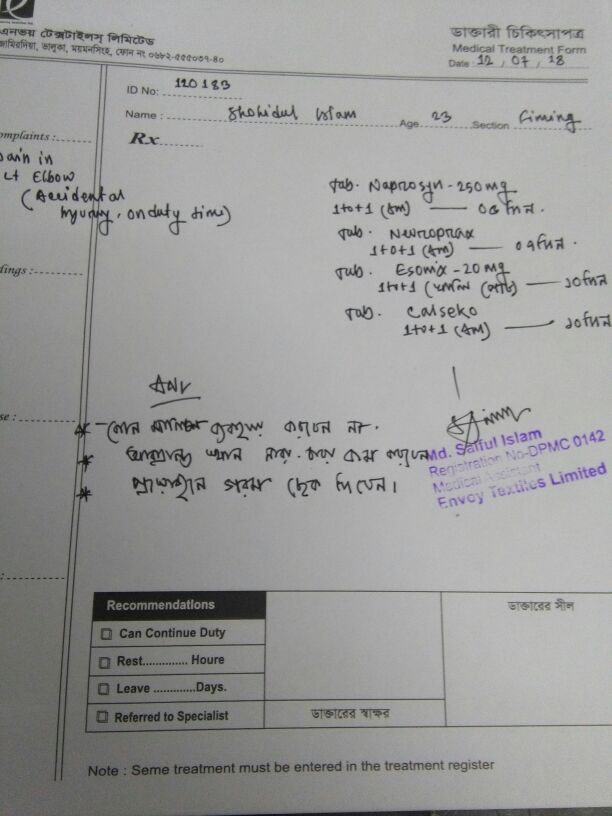 এনভয় টেক্সটাইলস্ লিমিটেড
জামিরদিয়া, ভালুকা, ময়মনসিংহ, ফোন নং ০৬৮২-৫৫৫০৩৭-৪০
ডাক্তারী চিকিৎসাপত্র
Medical Treatment Form
Date : 12 / 07 / 18
ID No: 120183
Name : Shohidul Islam Age 23 Section
omplaints :
Rx
pain in
Lt Elbow
(Accidental
injury, on duty time)
Tab. Naprosyn - 250 mg
1+0+1 (Am) — ০৫ দিন.
Tab. Neuroprax
1+0+1 (Am) — ০৭ দিন.
Tab. Esomix - 20 mg
1+0+1 (খালি পেটে) — ১০ দিন
Tab. Calseko
1+0+1 (Am) — ১০ দিন
dings :
Adv
se :
ব্যবহার করবেন না.
গরম ছেক দিবেন।
Md. Saiful Islam
Registration No-DPMC 0142
Medical Assistant
Envoy Textiles Limited
Recommendations
Can Continue Duty
Rest.............. Houre
Leave .............Days.
Referred to Specialist
ডাক্তারের স্বাক্ষর
ডাক্তারের সীল
Note : Seme treatment must be entered in the treatment register